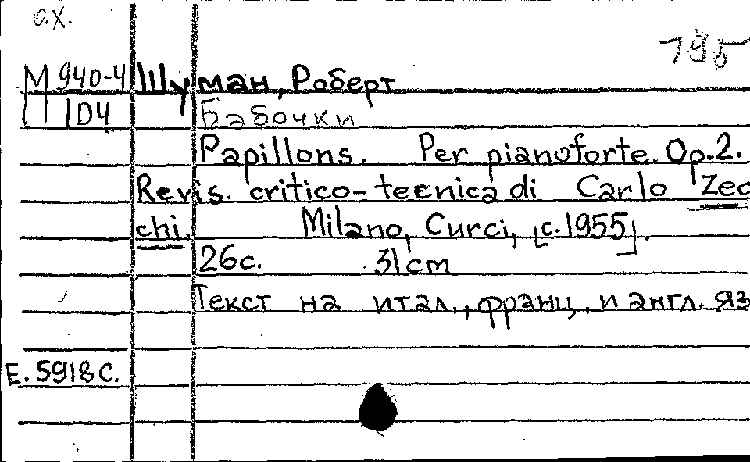 о.х.
195
М 940-4 Шуман, Роберт
104 Бабочки
Papillons. Per pianoforte. Op.2.
Revis. critico-tecnica di Carlo Zec
chi. Milano, Curci, [c.1955].
26с. 31cm
Текст на итал., франц. и англ. яз
Е.5918с.